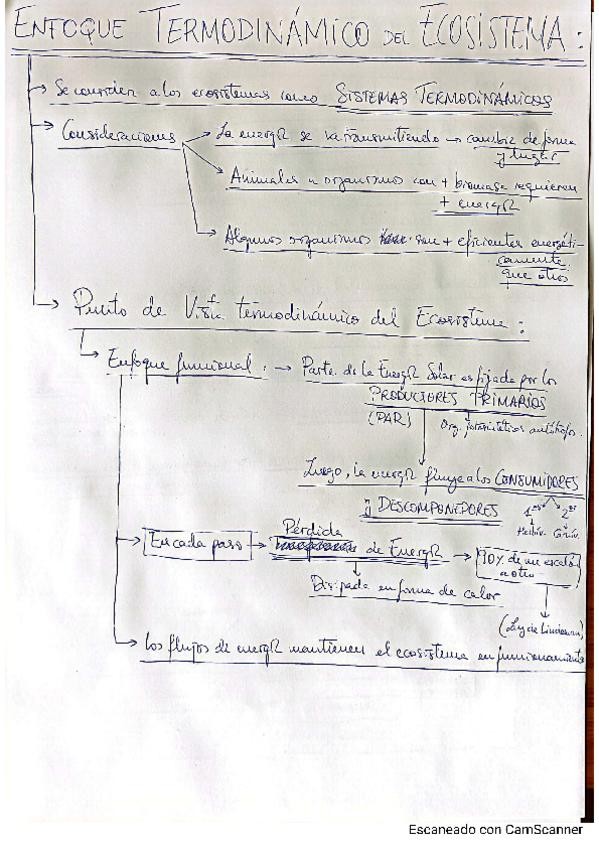 ENFOQUE TERMODINÁMICO DEL ECOSISTEMA:
Se consideran a los ecosistemas como SISTEMAS TERMODINÁMICOS
Consideraciones
La energía se va transmitiendo → cambia de forma
y lugar
Animales u organismos con + biomasa requieren
+ energía
Algunos organismos son + eficientes energéti-
camente
que otros
Punto de Vista termodinámico del Ecosistema:
Enfoque funcional: → Parte de la Energía Solar es fijada por los
PRODUCTORES PRIMARIOS
(PAR)
Org. fotosintéticos autótrofos.
Luego, la energía fluye a los CONSUMIDORES
y DESCOMPONEDORES
1os 2os
Herbív. Carnív.
En cada paso → Pérdida de Energía → 90% de un escalón
a otro
Disipada en forma de calor
(Ley de Lindeman)
Los flujos de energía mantienen el ecosistema en funcionamiento
Escaneado con CamScanner